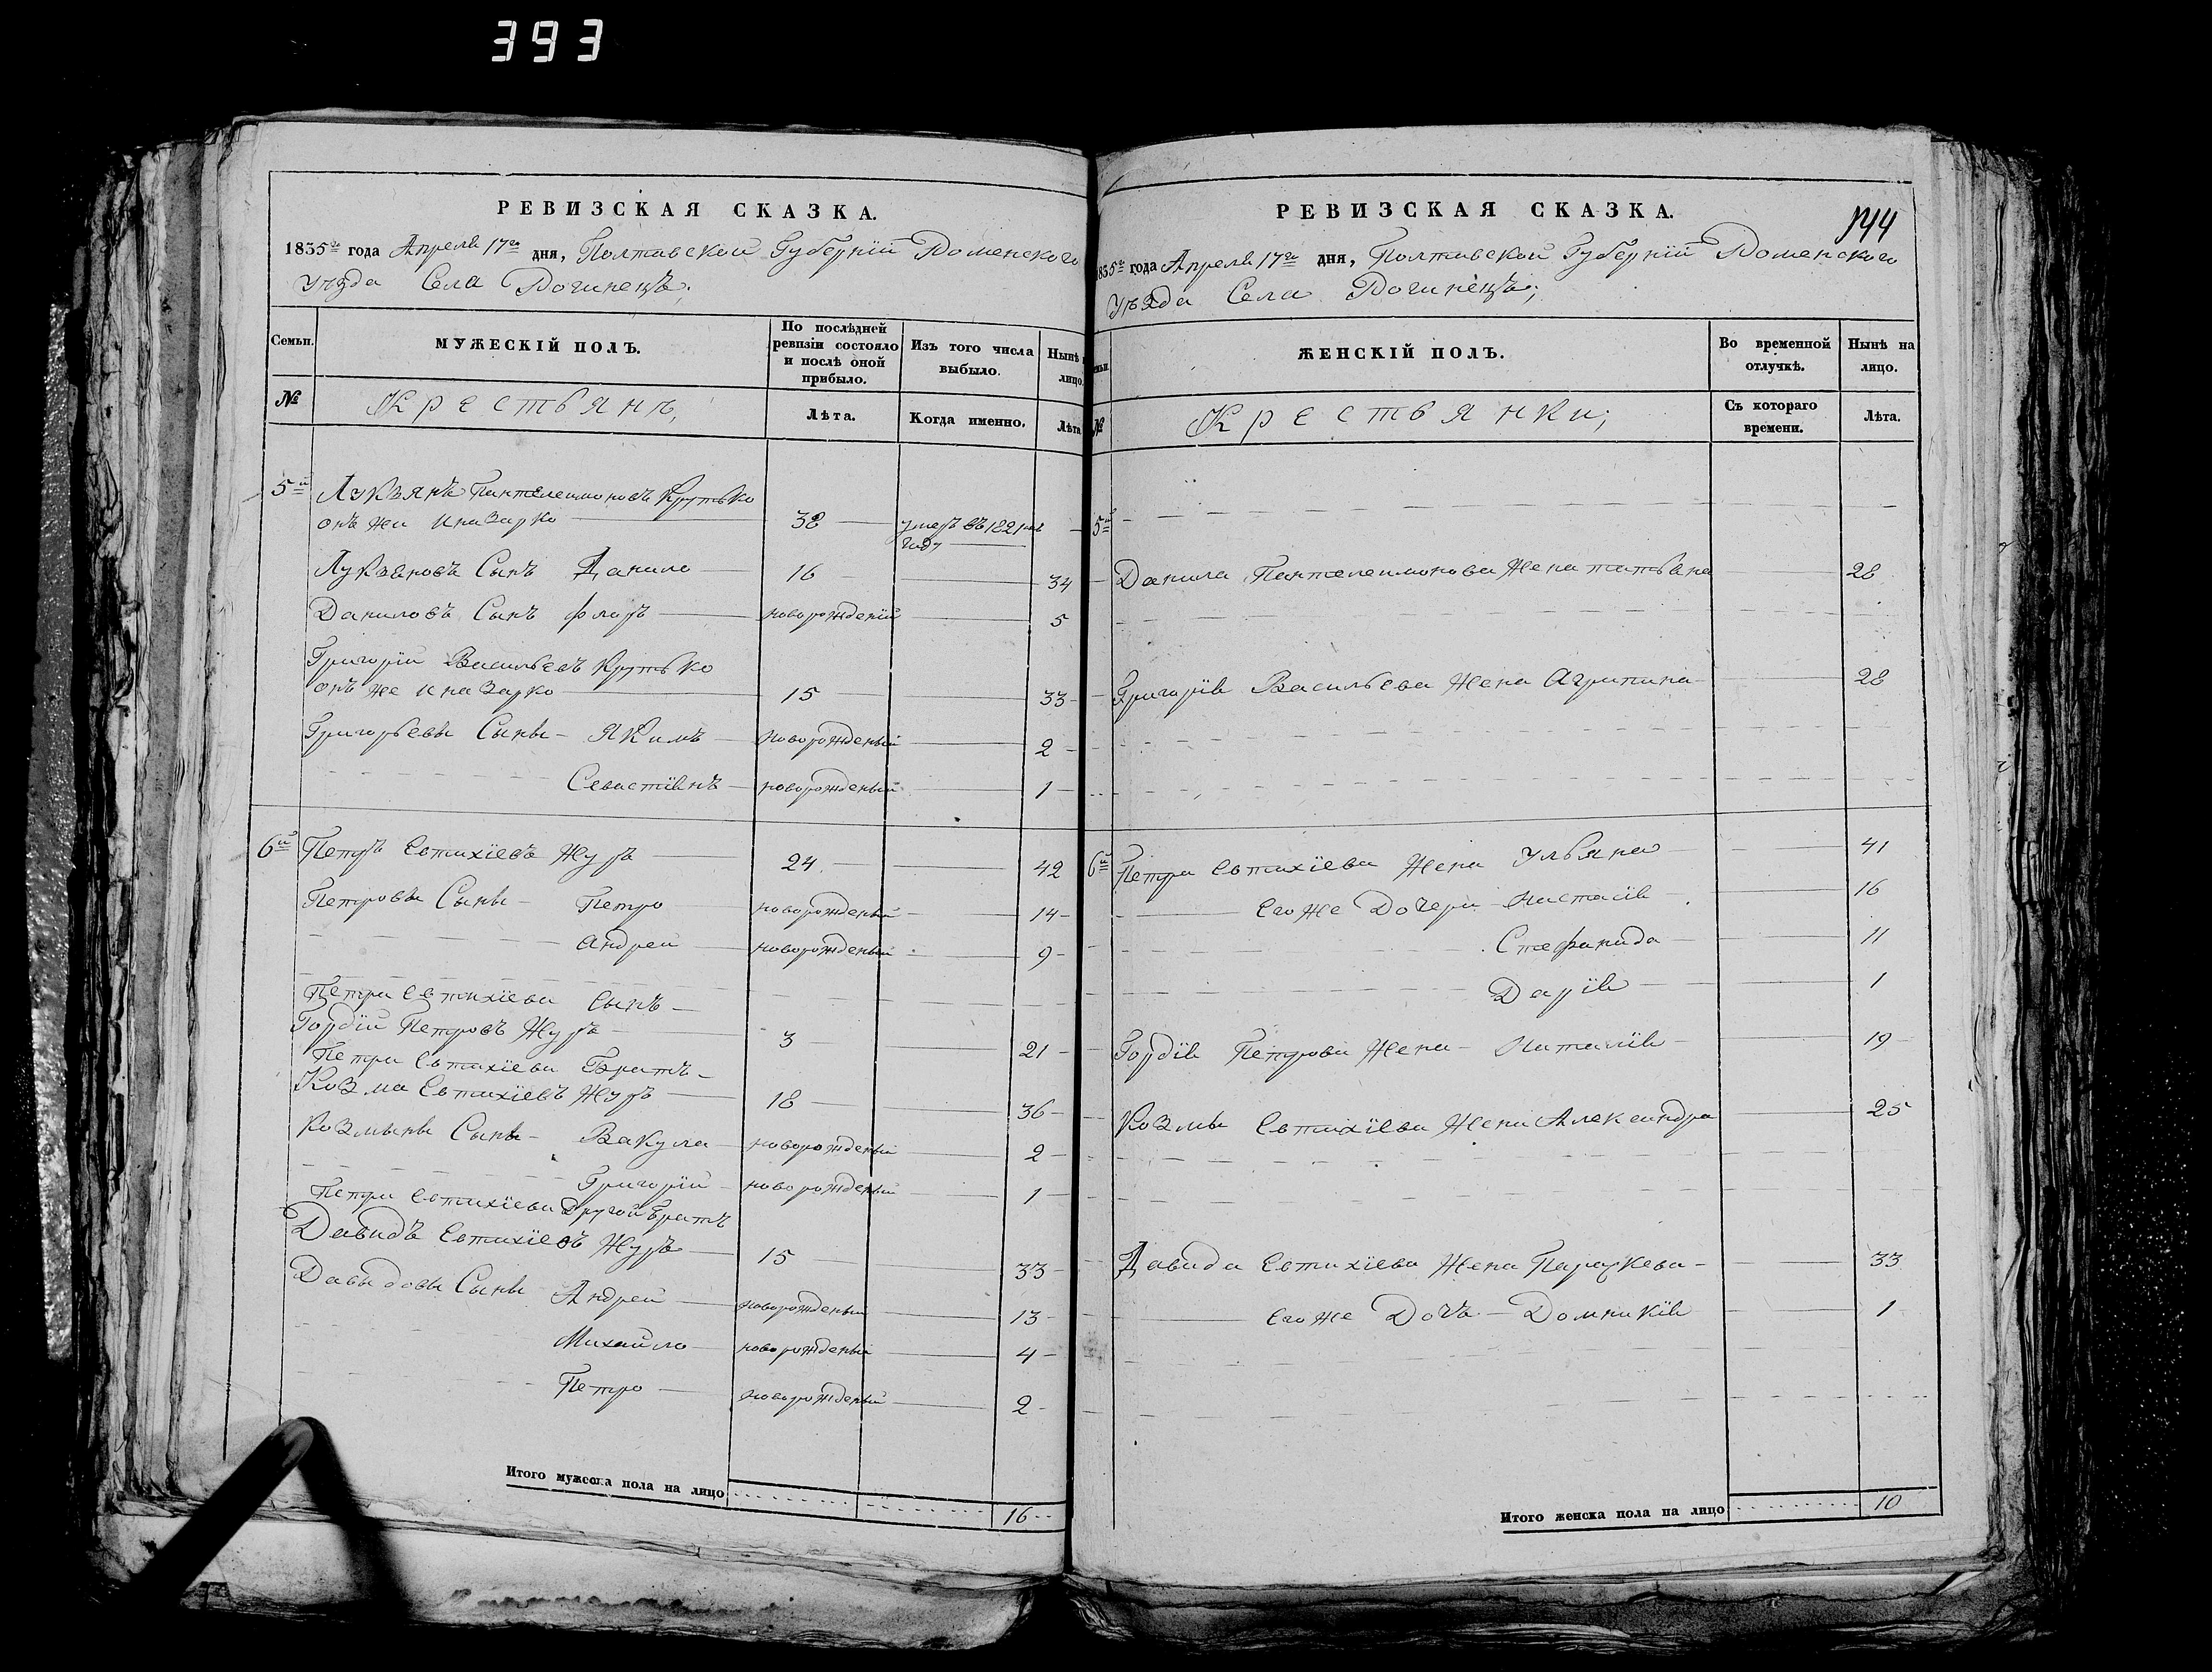 393
РЕВИЗСКАЯ СКАЗКА.
1835го года Апреля 17го дня, Полтавской Губернїи Роменского
Уѣзда Села Рогинецъ;
Семьи. МУЖЕСКІЙ ПОЛЪ. По послѣдней ревизіи состояло и послѣ оной прибыло. Изъ того числа выбыло. Нынѣ лицо.
№ Крестьянъ, Лѣта. Когда именно. Лѣта
5й Лукьянъ Пантелеимоновъ Крутько
онъ же 38 умеръ въ 1821мъ
году
Лукьяновъ Сынъ Данило 16 34
Даниловъ Сынъ Флоръ новорожденій 5
Григорій Васильевъ Крутько
онъ же 15 33
Григорьевы Сыны - Якимъ новорожденый 2
Севастіянъ новорожденый 1
6й Петръ Евтихіевъ Журъ 24 42
Петровы Сыны - Петро новорожденый 14
Андрей новорожденый 9
Петра Евтихіева Сынъ
Гордій Петровъ Журъ 3 21
Петра Евтихіева Братъ
Козма Евтихіевъ Журъ 18 36
Козмыны Сыны - Вакула новорожденый 2
Григорій новорожденый 1
Петра Евтихіева Другой Братъ
Давидъ Евтихіевъ Журъ 15 33
Давыдовы Сыны Андрей новорожденый 13
Михайло новорожденый 4
Петро новорожденый 2
Итого мужеска пола на лицо 16
РЕВИЗСКАЯ СКАЗКА. 144
835го года Апреля 17го дня, Полтавской Губернїи Роменского
Уѣзда Села Рогинецъ;
ЖЕНСКІЙ ПОЛЪ. Во временной отлучкѣ. Нынѣ на лицо.
№ Крестьянки; Съ котораго времени. Лѣта.
5й
Данила Пантелеимонова Жена татьяна 28
Григорія Васильева Жена Агрипина 28
6й Петра Евтихіева Жена Ульяна 41
Его же Дочери Настасія 16
Стефанида 11
Дарія 1
Гордія Петрова Жена - Наталія 19
Козмы Евтихіева Жена Александра 25
Давида Евтихіева Жена Параскева 33
Его же Дочъ - Домникія 1
Итого женска пола на лицо 10